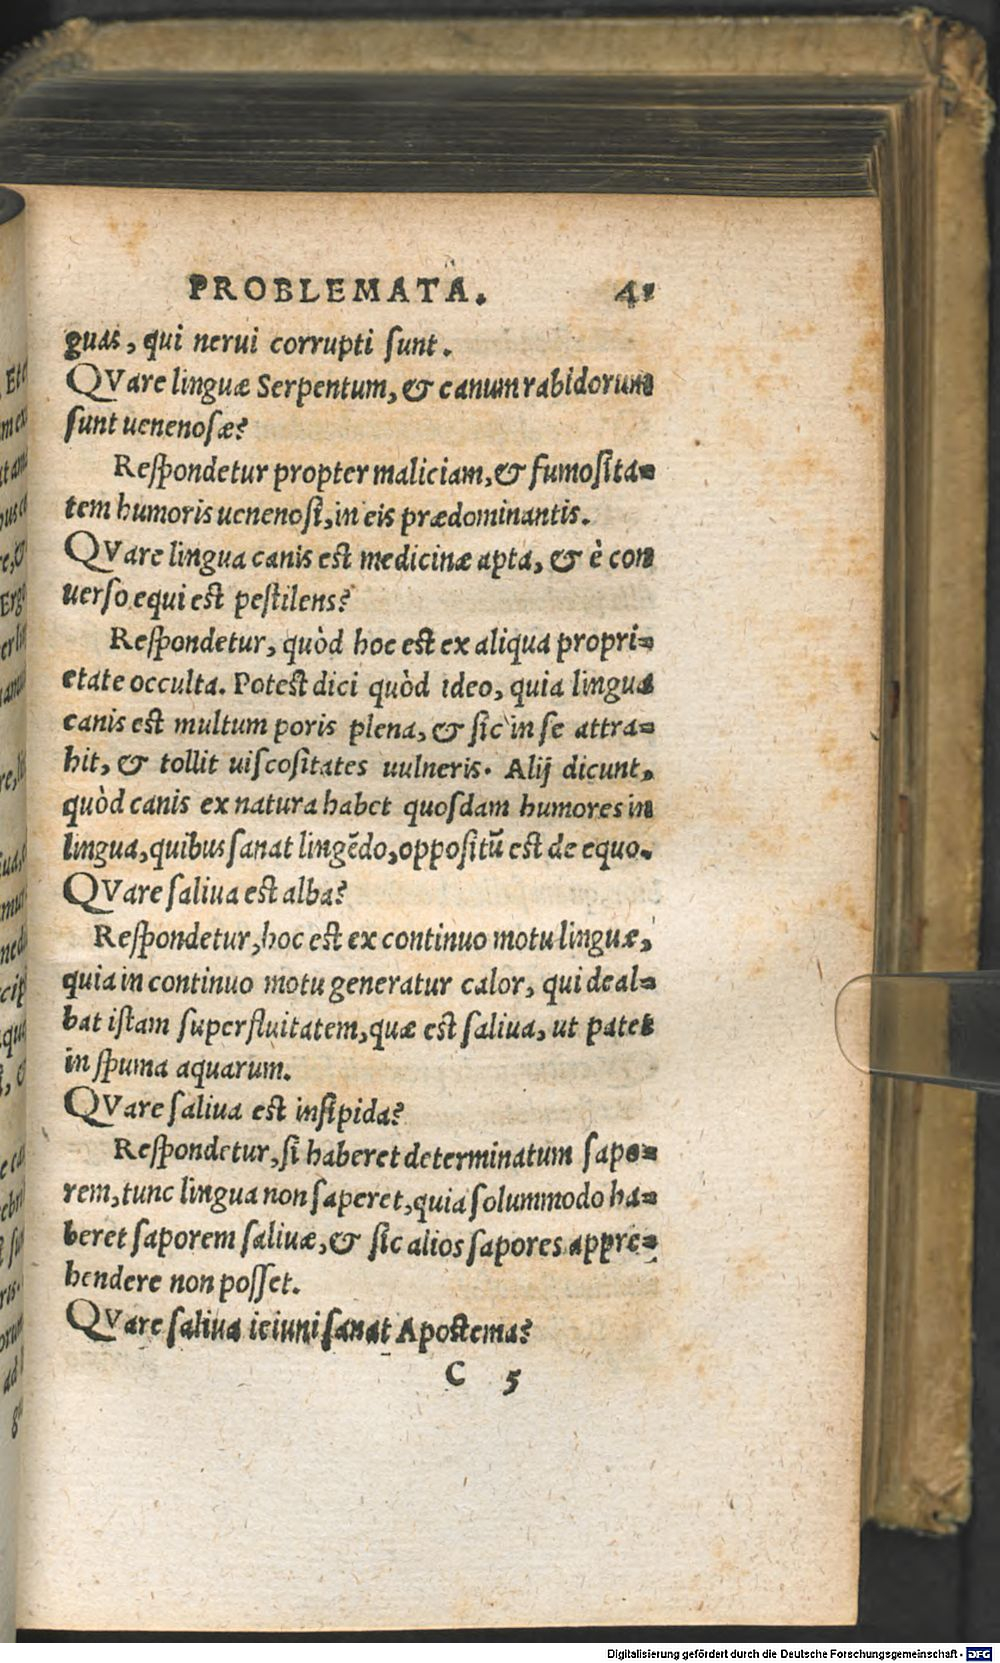 PROBLEMATA. 41
guas, qui nerui corrupti sunt.
QVare linguæ Serpentum, & canum rabidorum
sunt uenenosæ?
Respondetur propter maliciam, & fumosita=
tem humoris uenenosi, in eis prædominantis.
QVare lingua canis est medicinæ apta, & è con
uerso equi est pestilens?
Respondetur, quòd hoc est ex aliqua propri=
etate occulta. Potest dici quòd ideo, quia lingua
canis est multum poris plena, & sic in se attra=
hit, & tollit uiscositates uulneris. Alij dicunt,
quòd canis ex natura habet quosdam humores in
lingua, quibus sanat lingẽdo, oppositũ est de equo.
QVare saliua est alba?
Respondetur, hoc est ex continuo motu linguæ,
quia in continuo motu generatur calor, qui deal=
bat istam superfluitatem, quæ est saliua, ut patet
in spuma aquarum.
QVare saliua est insipida?
Respondetur, si haberet determinatum sapo=
rem, tunc lingua non saperet, quia solummodo ha=
beret saporem saliuæ, & sic alios sapores appre=
hendere non posset.
QVare saliua ieiuni sanat Apostema?
C 5
Digitalisierung gefördert durch die Deutsche Forschungsgemeinschaft - DFG